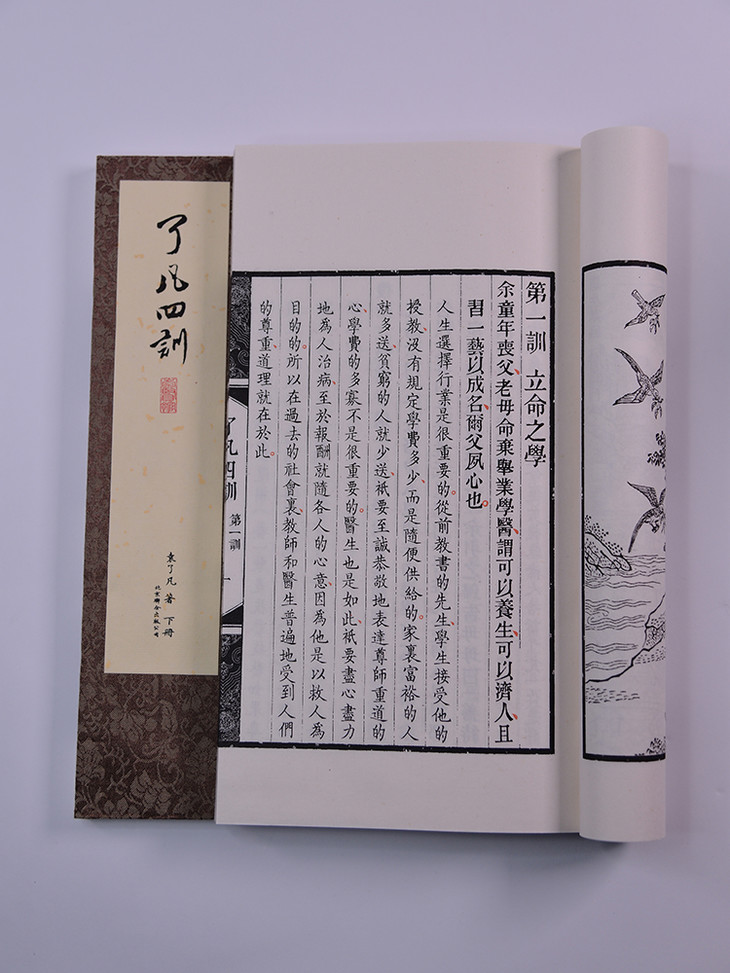 第一訓 立命之學
余童年喪父、老母命棄舉業學醫、謂可以養生、可以濟人、且
習一藝以成名、爾父夙心也。
人生選擇行業是很重要的。從前教書的先生、學生接受他的
授教、沒有規定學費多少、而是隨便供給的。家裏富裕的人
就多送、貧窮的人就少送、祇要至誠恭敬地表達尊師重道的
心、學費的多寡不是很重要的。醫生也是如此、祇要盡心盡力
地為人治病、至於報酬就隨各人的心意、因為他是以救人為
目的的。所以在過去的社會裏、教師和醫生普遍地受到人們
的尊重道理就在於此。
了凡四訓 第一訓 一
了凡四訓
袁了凡 著 下冊
北京聯合出版公司